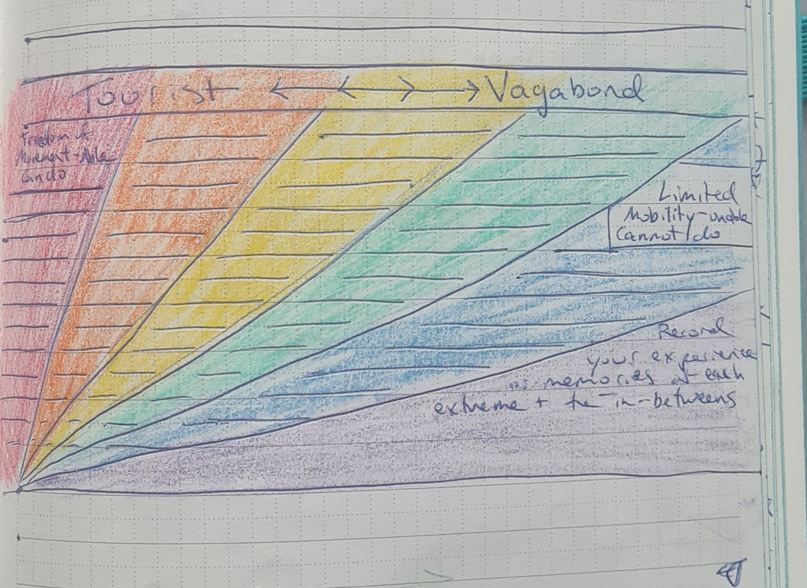 Tourist ←←→→ Vagabond
Freedom of
Movement-Able
Can do
Limited
Mobility-unable
Cannot/do
Record
your experience
or memories of each
extreme + the in-betweens